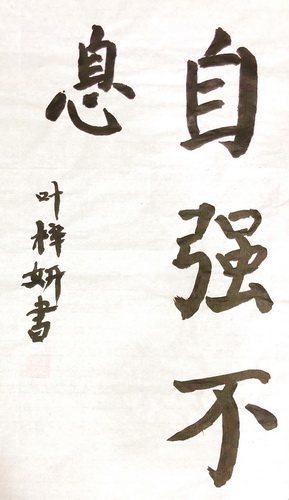 自强不
息
叶梓妍書